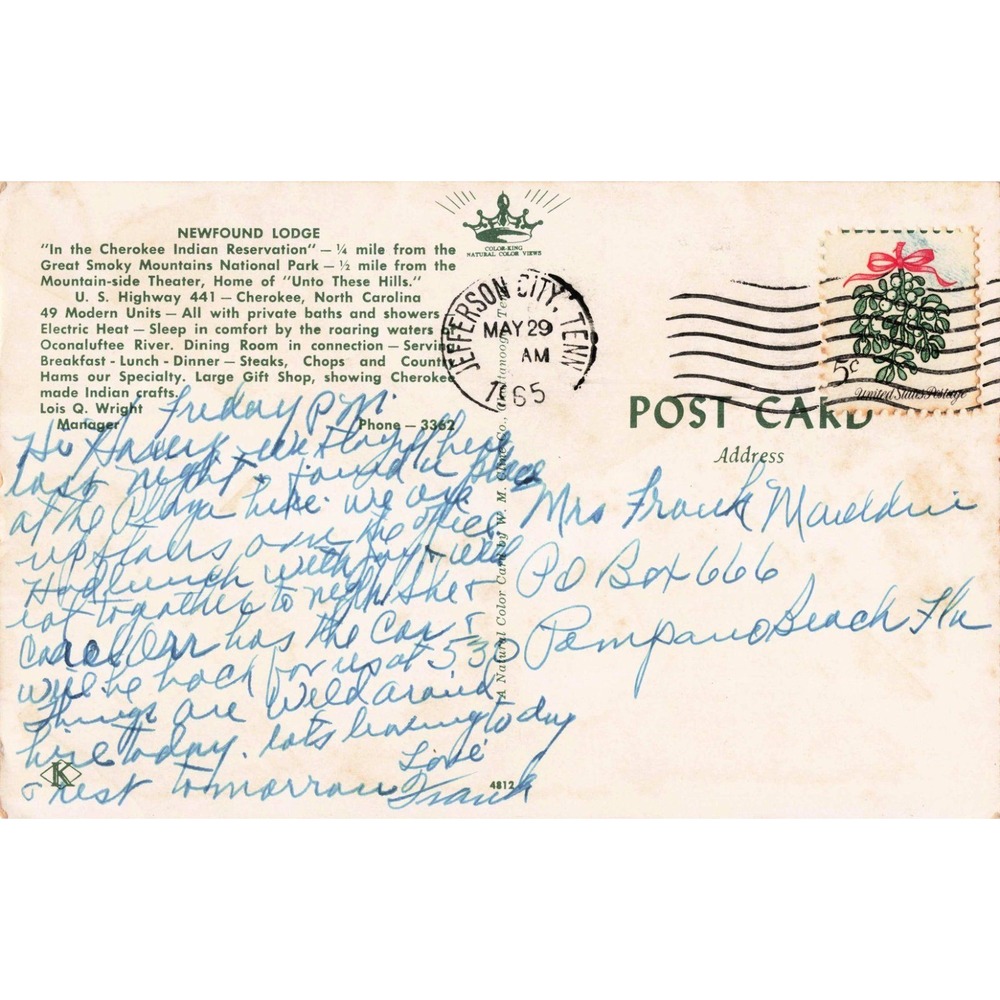 NEWFOUND LODGE
"In the Cherokee Indian Reservation" — ¼ mile from the
Great Smoky Mountains National Park — ½ mile from the
Mountain-side Theater, Home of "Unto These Hills."
U. S. Highway 441 — Cherokee, North Carolina
49 Modern Units — All with private baths and showers
Electric Heat — Sleep in comfort by the roaring waters
Oconaluftee River. Dining Room in connection — Serving
Breakfast - Lunch - Dinner — Steaks, Chops and Count
Hams our Specialty. Large Gift Shop, showing Cherokee
made Indian crafts.
Lois Q. Wright
Manager
Phone — 3362
Friday P.M.
last night & found a place
at the Plaza here. we are
upstairs over the office
Had lunch with Joy & will
eat together to night She &
Carol Orr has the Car &
will be back for us at 530
Things are Wild around
here today. lots leaving today
& rest tomorrow
Love
Frank
K
4812
COLOR-KING
NATURAL COLOR VIEWS
A Natural Color Card by W. M. Cline Co., Chattanooga, Tenn.
JEFFERSON CITY, TENN
MAY 29
AM
1965
5¢
United States Postage
POST CARD
Address
Mrs Frank Mauldin
PO Box 666
Pompano Beach Fla